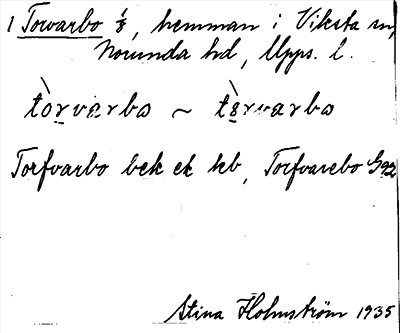 1 Torvarbo 1/8, hemman i Viksta sn,
Norunda hd, Upps. l.
tòrvarbo ~ tèrvarbo
Torfvarbo bek ek kb, Torfvarebo G92
Stina Holmström 1935